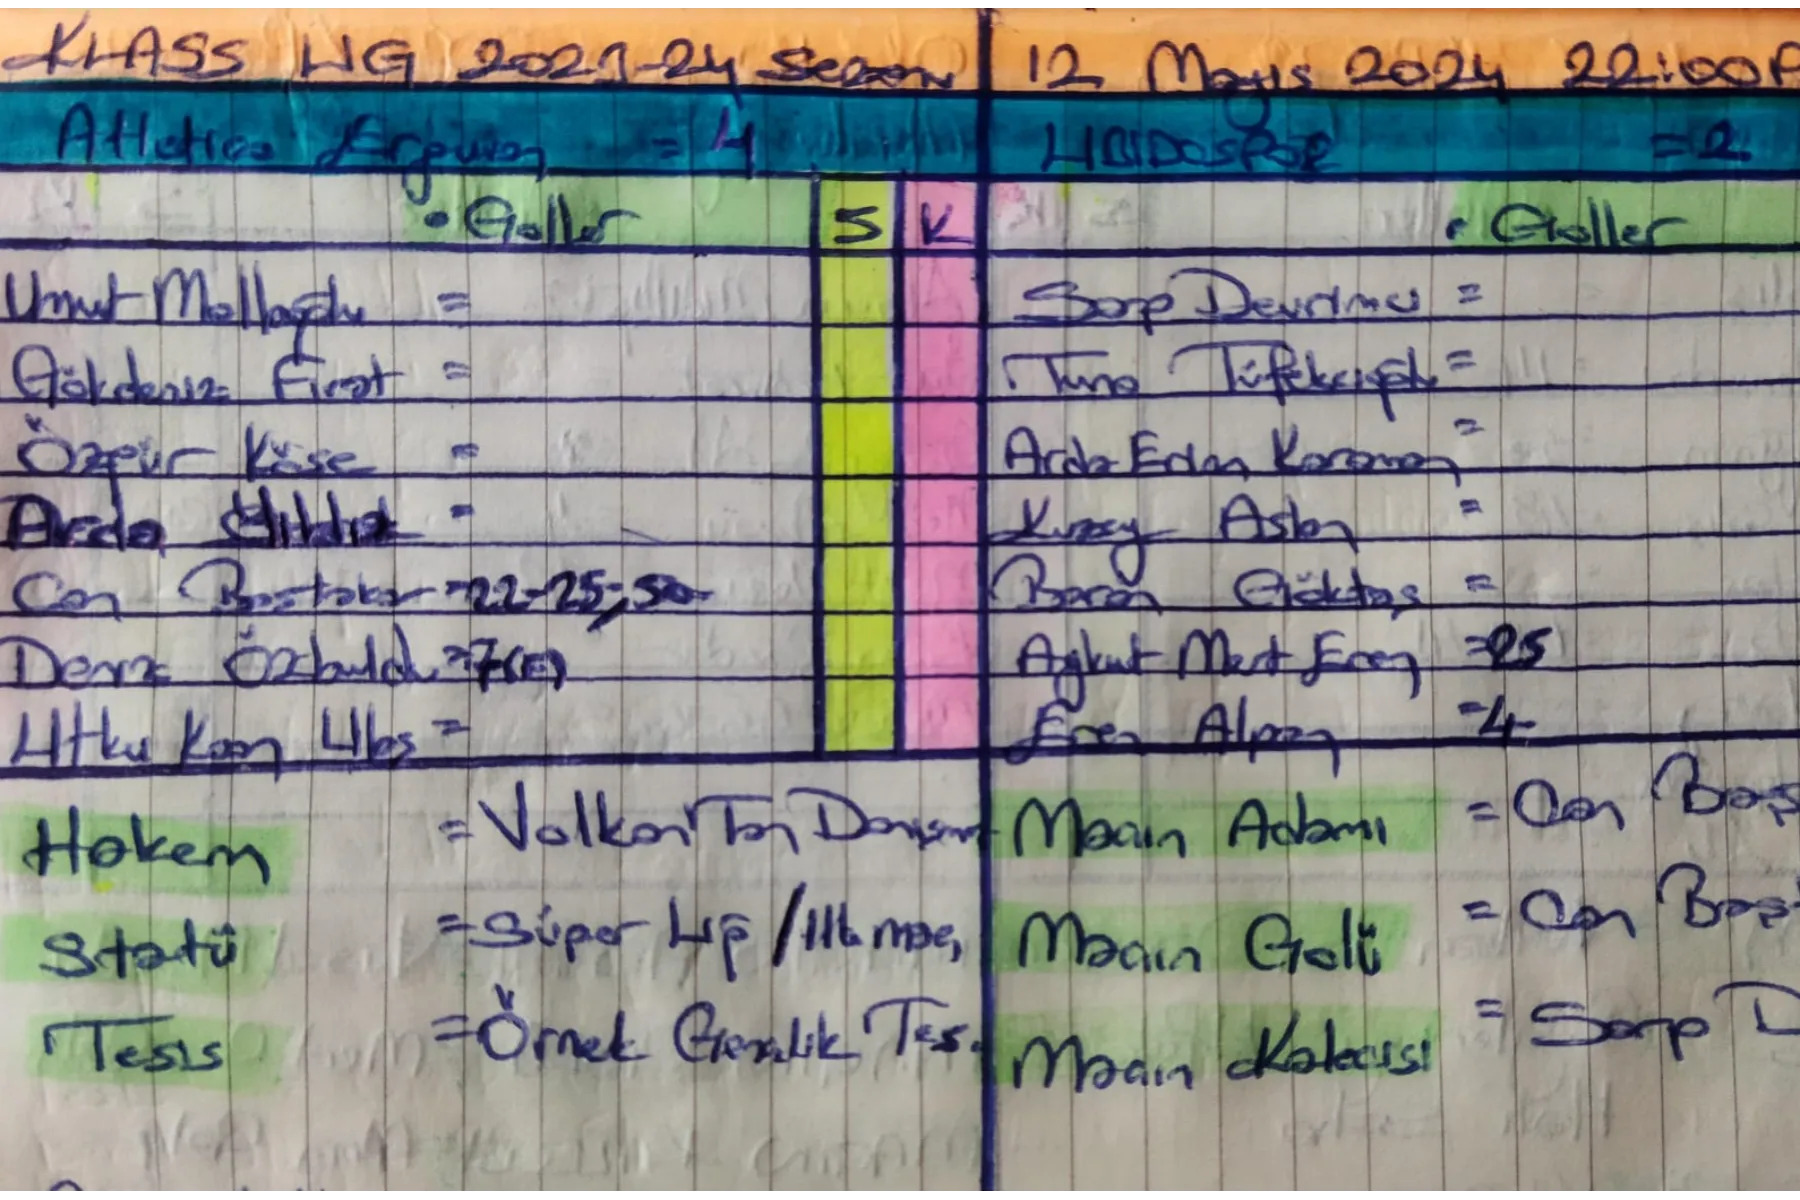 KLASS LİG 2023-24 Sezonu
12 Mayıs 2024 22:00P
Atletico Erguvan = 4
LIBIDOSPOR = 2
• Goller S K
• Goller
Umut Mollaoğlu =
Sarp Devrimci =
Gökdeniz Fırat =
Tuna Tüfekçioğlu =
Özgür Köse =
Arda Erdan Karaman =
Arda Yıldız =
Kuzey Aslan =
Can Baştakar = 22-25, 50
Baran Göktaş =
Deniz Özbuldu = 7(P)
Aykut Mert Eren = 25
Utku Kaan Ulas =
Eren Alpan = 4
Hakem = Volkan Tan Danışman
Maçın Adamı = Can Baş
Statü = Süper Lig / Ilk maç
Maçın Golü = Can Başt
Tesis = Örnek Gençlik Tes.
Maçın Kalecisi = Sarp D